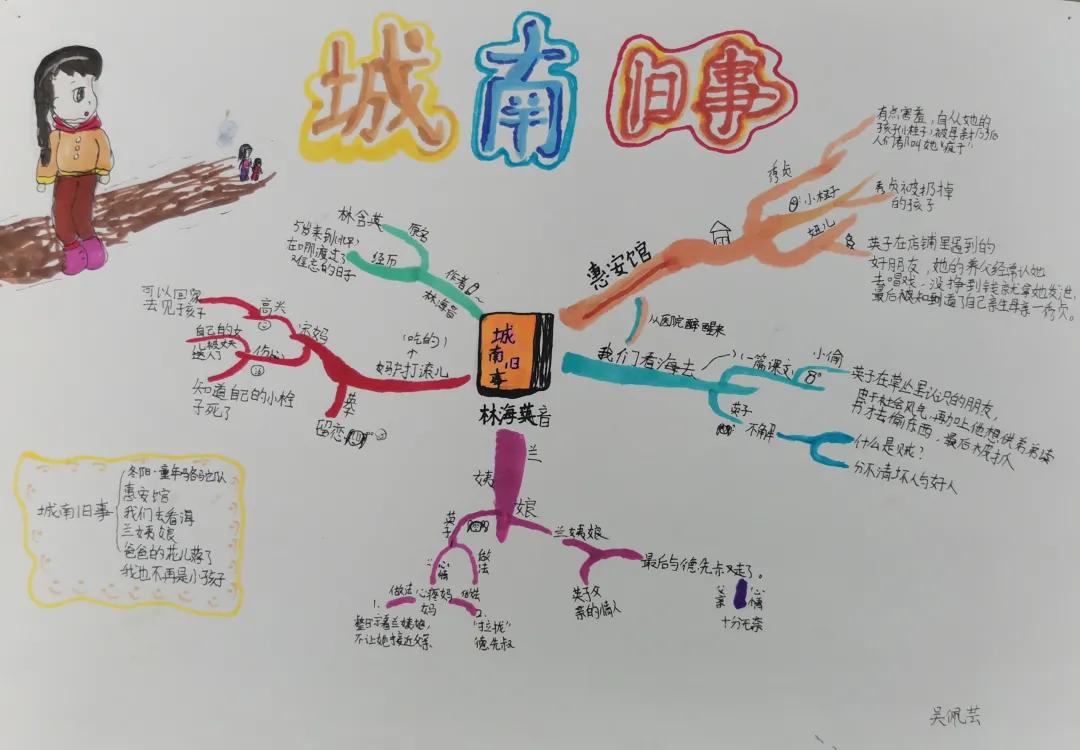 城南旧事
有点害羞,自从她的
孩子(小桂子)被母亲扔
人们都叫她"疯子"
秀贞
小桂子
秀贞被扔掉
的孩子
妞儿
英子在店铺里遇到的
好朋友,她的养父经常让她
去唱戏,没挣到钱就拿她发泄,
最后被知道了自己亲生母亲—秀贞。
惠安馆
从医院醒来
林含英
原名
5岁来到北京,
在哪渡过了
难忘的日子
经历
作者
林海音
可以回家
去见孩子
高兴
宋妈
自己的女
儿被丈夫
送人了
伤心
知道自己的小栓
子死了
(吃的)
妈
打滚儿
英子
留恋
城南旧事
林海英音
我们看海去
(一篇课文)
小偷
英子在草丛里认识的朋友,
由于社会风气,再加上他想供弟弟读
书才去偷东西,最后被抓
英子
不解
什么是贼?
分不清坏人与好人
兰姨娘
英子
心情
做法
心疼妈妈
做法
1.
整日看着兰姨娘,
不让她接近父亲
做法
2.
"拉拢"
德先叔
兰姨娘
最后与德先叔走了。
英子父
亲的情人
父亲
心情
十分无奈
城南旧事
冬阳·童年·骆驼队
惠安馆
我们去看海
兰姨娘
爸爸的花儿落了
我也不再是小孩子
吴佩芸